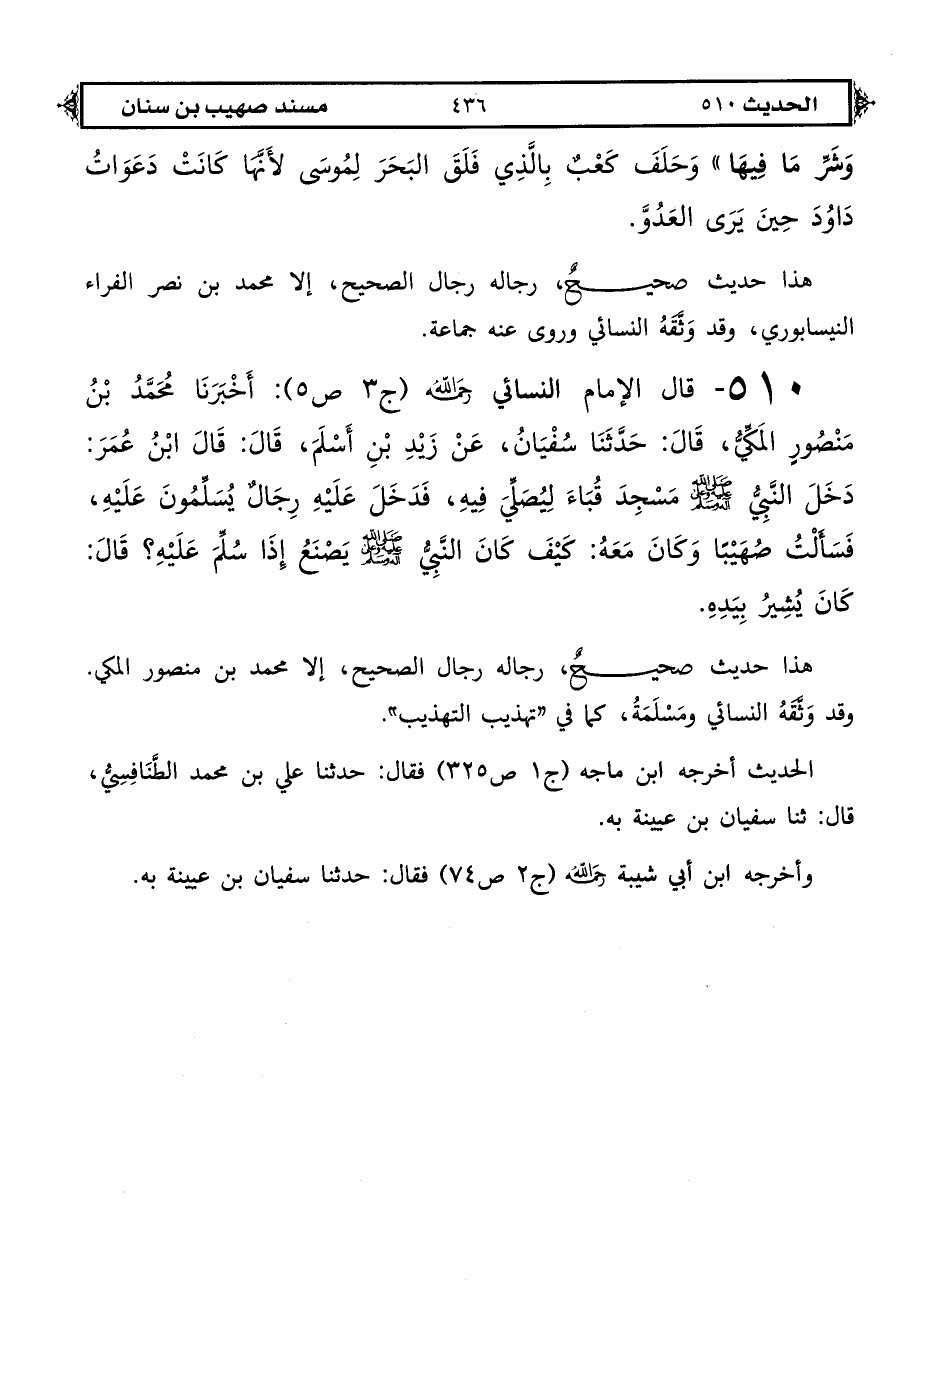 الحديث ٥١٠ ٤٣٦ مسند صهيب بن سنان
وَشَرِّ مَا فِيهَا» وَحَلَفَ كَعْبٌ بِالَّذِي فَلَقَ البَحَرَ لِمُوسَى لأَنَّهَا كَانَتْ دَعَوَاتُ
دَاوُدَ حِينَ يَرَى العَدُوَّ.
هذا حديث صحيـــــحٌ، رجاله رجال الصحيح، إلا محمد بن نصر الفراء
النيسابوري، وقد وَثَّقَهُ النسائي وروى عنه جماعة.
٥١٠- قال الإمام النسائي رَحِمَهُ اللهُ (ج٣ ص٥): أَخْبَرَنَا مُحَمَّدُ بْنُ
مَنْصُورٍ المَكِّيُّ، قَالَ: حَدَّثَنَا سُفْيَانُ، عَنْ زَيْدِ بْنِ أَسْلَمَ، قَالَ: قَالَ ابْنُ عُمَرَ:
دَخَلَ النَّبِيُّ ﷺ مَسْجِدَ قُبَاءَ لِيُصَلِّيَ فِيهِ، فَدَخَلَ عَلَيْهِ رِجَالٌ يُسَلِّمُونَ عَلَيْهِ،
فَسَأَلْتُ صُهَيْبًا وَكَانَ مَعَهُ: كَيْفَ كَانَ النَّبِيُّ ﷺ يَصْنَعُ إِذَا سُلِّمَ عَلَيْهِ؟ قَالَ:
كَانَ يُشِيرُ بِيَدِهِ.
هذا حديث صحيـــــحٌ، رجاله رجال الصحيح، إلا محمد بن منصور المكي.
وقد وَثَّقَهُ النسائي ومَسْلَمَةُ، كما في "تهذيب التهذيب".
الحديث أخرجه ابن ماجه (ج١ ص٣٢٥) فقال: حدثنا علي بن محمد الطَّنَافِسِيُّ،
قال: ثنا سفيان بن عيينة به.
وأخرجه ابن أبي شيبة رَحِمَهُ اللهُ (ج٢ ص٧٤) فقال: حدثنا سفيان بن عيينة به.